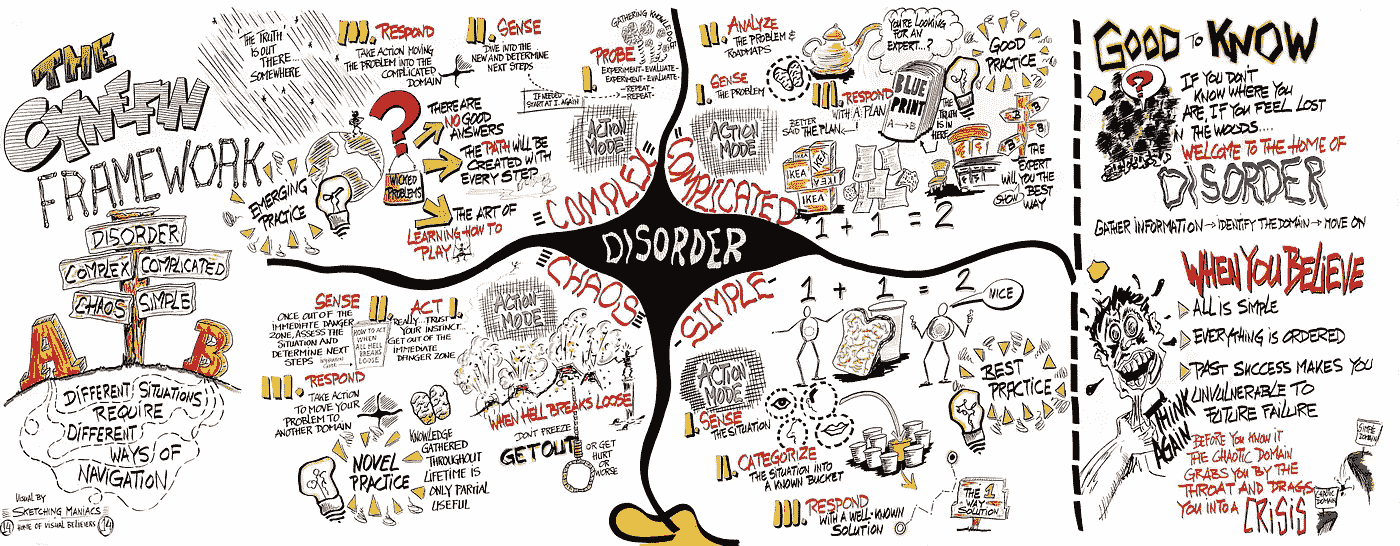 THE
CYNEFIN
FRAMEWORK
DISORDER
COMPLEX
COMPLICATED
CHAOS
SIMPLE
A
B
DIFFERENT SITUATIONS
REQUIRE
DIFFERENT
WAYS OF
NAVIGATION
Visual BY
SKETCHING MANIACS
HOME OF VISUAL BELIEVERS
THE TRUTH
IS OUT
THERE...
SOMEWHERE
III. RESPOND
TAKE ACTION MOVING
THE PROBLEM INTO THE
COMPLICATED
DOMAIN
II. SENSE
DIVE INTO THE
NEW AND DETERMINE
NEXT STEPS
GATHERING KNOWLEDGE
PROBE
I.
EXPERIMENT-EVALUATE-
EXPERIMENT-EVALUATE-
-REPEAT-
-REPEAT-
IF NEEDED
START AT I. AGAIN
ACTION
MODE
?
WICKED
PROBLEMS
THERE ARE
NO GOOD
ANSWERS
THE PATH WILL BE
CREATED WITH
EVERY STEP
THE ART OF
LEARNING HOW TO
PLAY
EMERGING
PRACTICE
COMPLEX
II. ANALYZE
THE PROBLEM &
ROADMAPS
I. SENSE
THE PROBLEM
ACTION
MODE
III. RESPOND
WITH A PLAN
BETTER
SAID THE PLAN
YOU'RE LOOKING
FOR AN
EXPERT...?
BLUE
PRINT
A → B
THE
TRUTH
IS IN
HERE
GOOD
PRACTICE
B
B
B
THE
EXPERT
WILL
SHOW
YOU THE
BEST
WAY
IKEA
IKEA
IKEA
IKEA
1 + 1 = 2
COMPLICATED
DISORDER
CHAOS
ACTION
MODE
SENSE II.
ONCE OUT OF THE
IMMEDIATE DANGER
ZONE, ASSESS THE
SITUATION AND
DETERMINE NEXT
STEPS
HOW TO ACT
WHEN
ALL HELL
BREAKS
LOOSE
ACT I.
REALLY...TRUST
YOUR INSTINCT...
GET OUT OF THE
IMMEDIATE
DANGER ZONE
III. RESPOND
TAKE ACTION
TO MOVE YOUR
PROBLEM TO
ANOTHER DOMAIN
NOVEL
PRACTICE
KNOWLEDGE
GATHERED
THROUGHOUT
LIFETIME IS
ONLY PARTIAL
USEFUL
WHEN HELL BREAKS LOOSE
DON'T FREEZE
GET OUT
OR GET
HURT
OR
WORSE
SIMPLE
1 + 1 = 2
NICE
ACTION
MODE
I. SENSE
THE SITUATION
II. CATEGORIZE
THE SITUATION INTO
A KNOWN BUCKET
III. RESPOND
WITH A WELL-KNOWN
SOLUTION
BEST
PRACTICE
THE 1
WAY
SOLUTION
GOOD TO KNOW
?
IF YOU DON'T
KNOW WHERE YOU
ARE, IF YOU FEEL LOST
IN THE WOODS....
WELCOME TO THE HOME OF
DISORDER
GATHER INFORMATION → IDENTIFY THE DOMAIN → MOVE ON
WHEN YOU BELIEVE
ALL IS SIMPLE
EVERYTHING IS ORDERED
PAST SUCCESS MAKES YOU
UNVULNERABLE TO
FUTURE FAILURE
THINK
AGAIN
BEFORE YOU KNOW IT
THE CHAOTIC DOMAIN
GRABS YOU BY THE
THROAT AND DRAGS
YOU INTO A CRISIS
SIMPLE
DOMAIN
CHAOTIC
DOMAIN